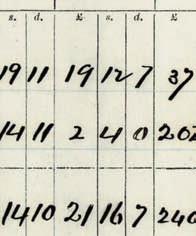 s. d. £ s. d. £
19 11 19 12 7 37
14 11 2 4 0 202
14 10 21 16 7 240